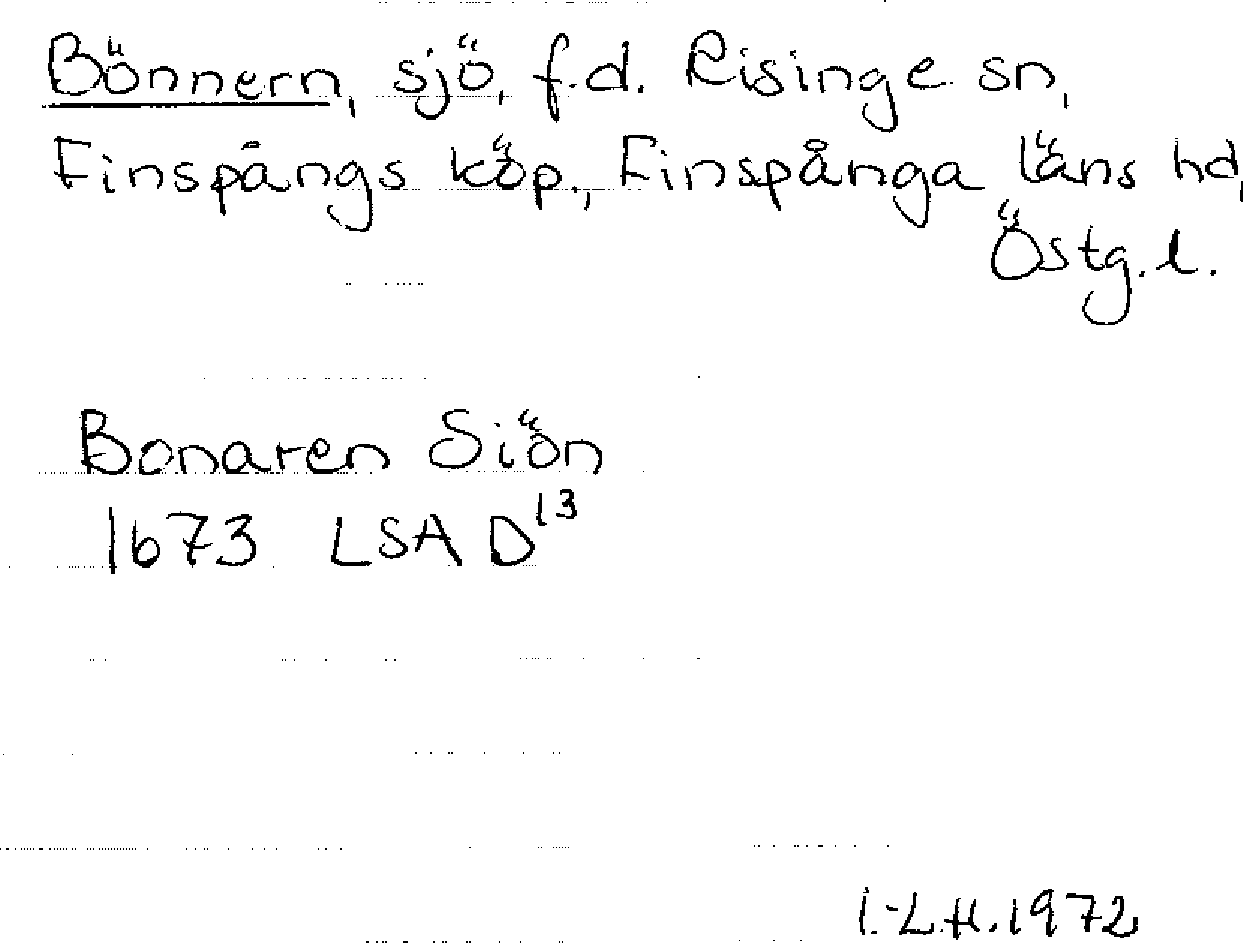 Bönnern, sjö, f.d. Risinge sn,
Finspångs köp., Finspånga läns hd,
Östg.l.
Bonaren Siön
1673 LSA D¹³
I.-L.H. 1972